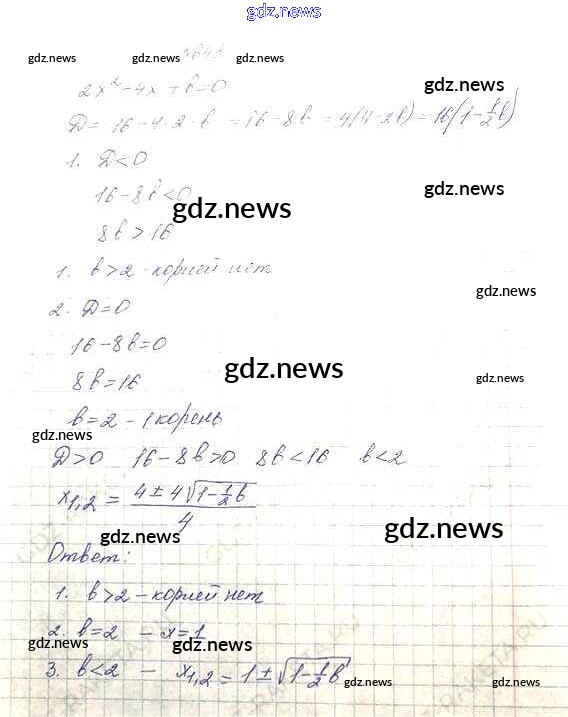 gdz.news
gdz.news gdz.news gdz.news
2x² - 4x + b = 0
gdz.news
D = 16 - 4·2·b = 16 - 8b = 4(4-2b) = 16(1 - 1/2 b)
1. D < 0
gdz.news
16 - 8b < 0
gdz.news
8b > 16
1. b > 2 - корней нет
gdz.news
2. D = 0
16 - 8b = 0
gdz.news
8b = 16
gdz.news
b = 2 - 1 корень
gdz.news
D > 0 16 - 8b > 0 8b < 16 b < 2
x₁,₂ = (4 ± 4√(1 - 1/2 b)) / 4
gdz.news
Ответ:
1. b > 2 - корней нет
2. b = 2 - x = 1
gdz.news gdz.news
3. b < 2 - x₁,₂ = 1 ± √(1 - 1/2 b)
gdz.news gdz.news